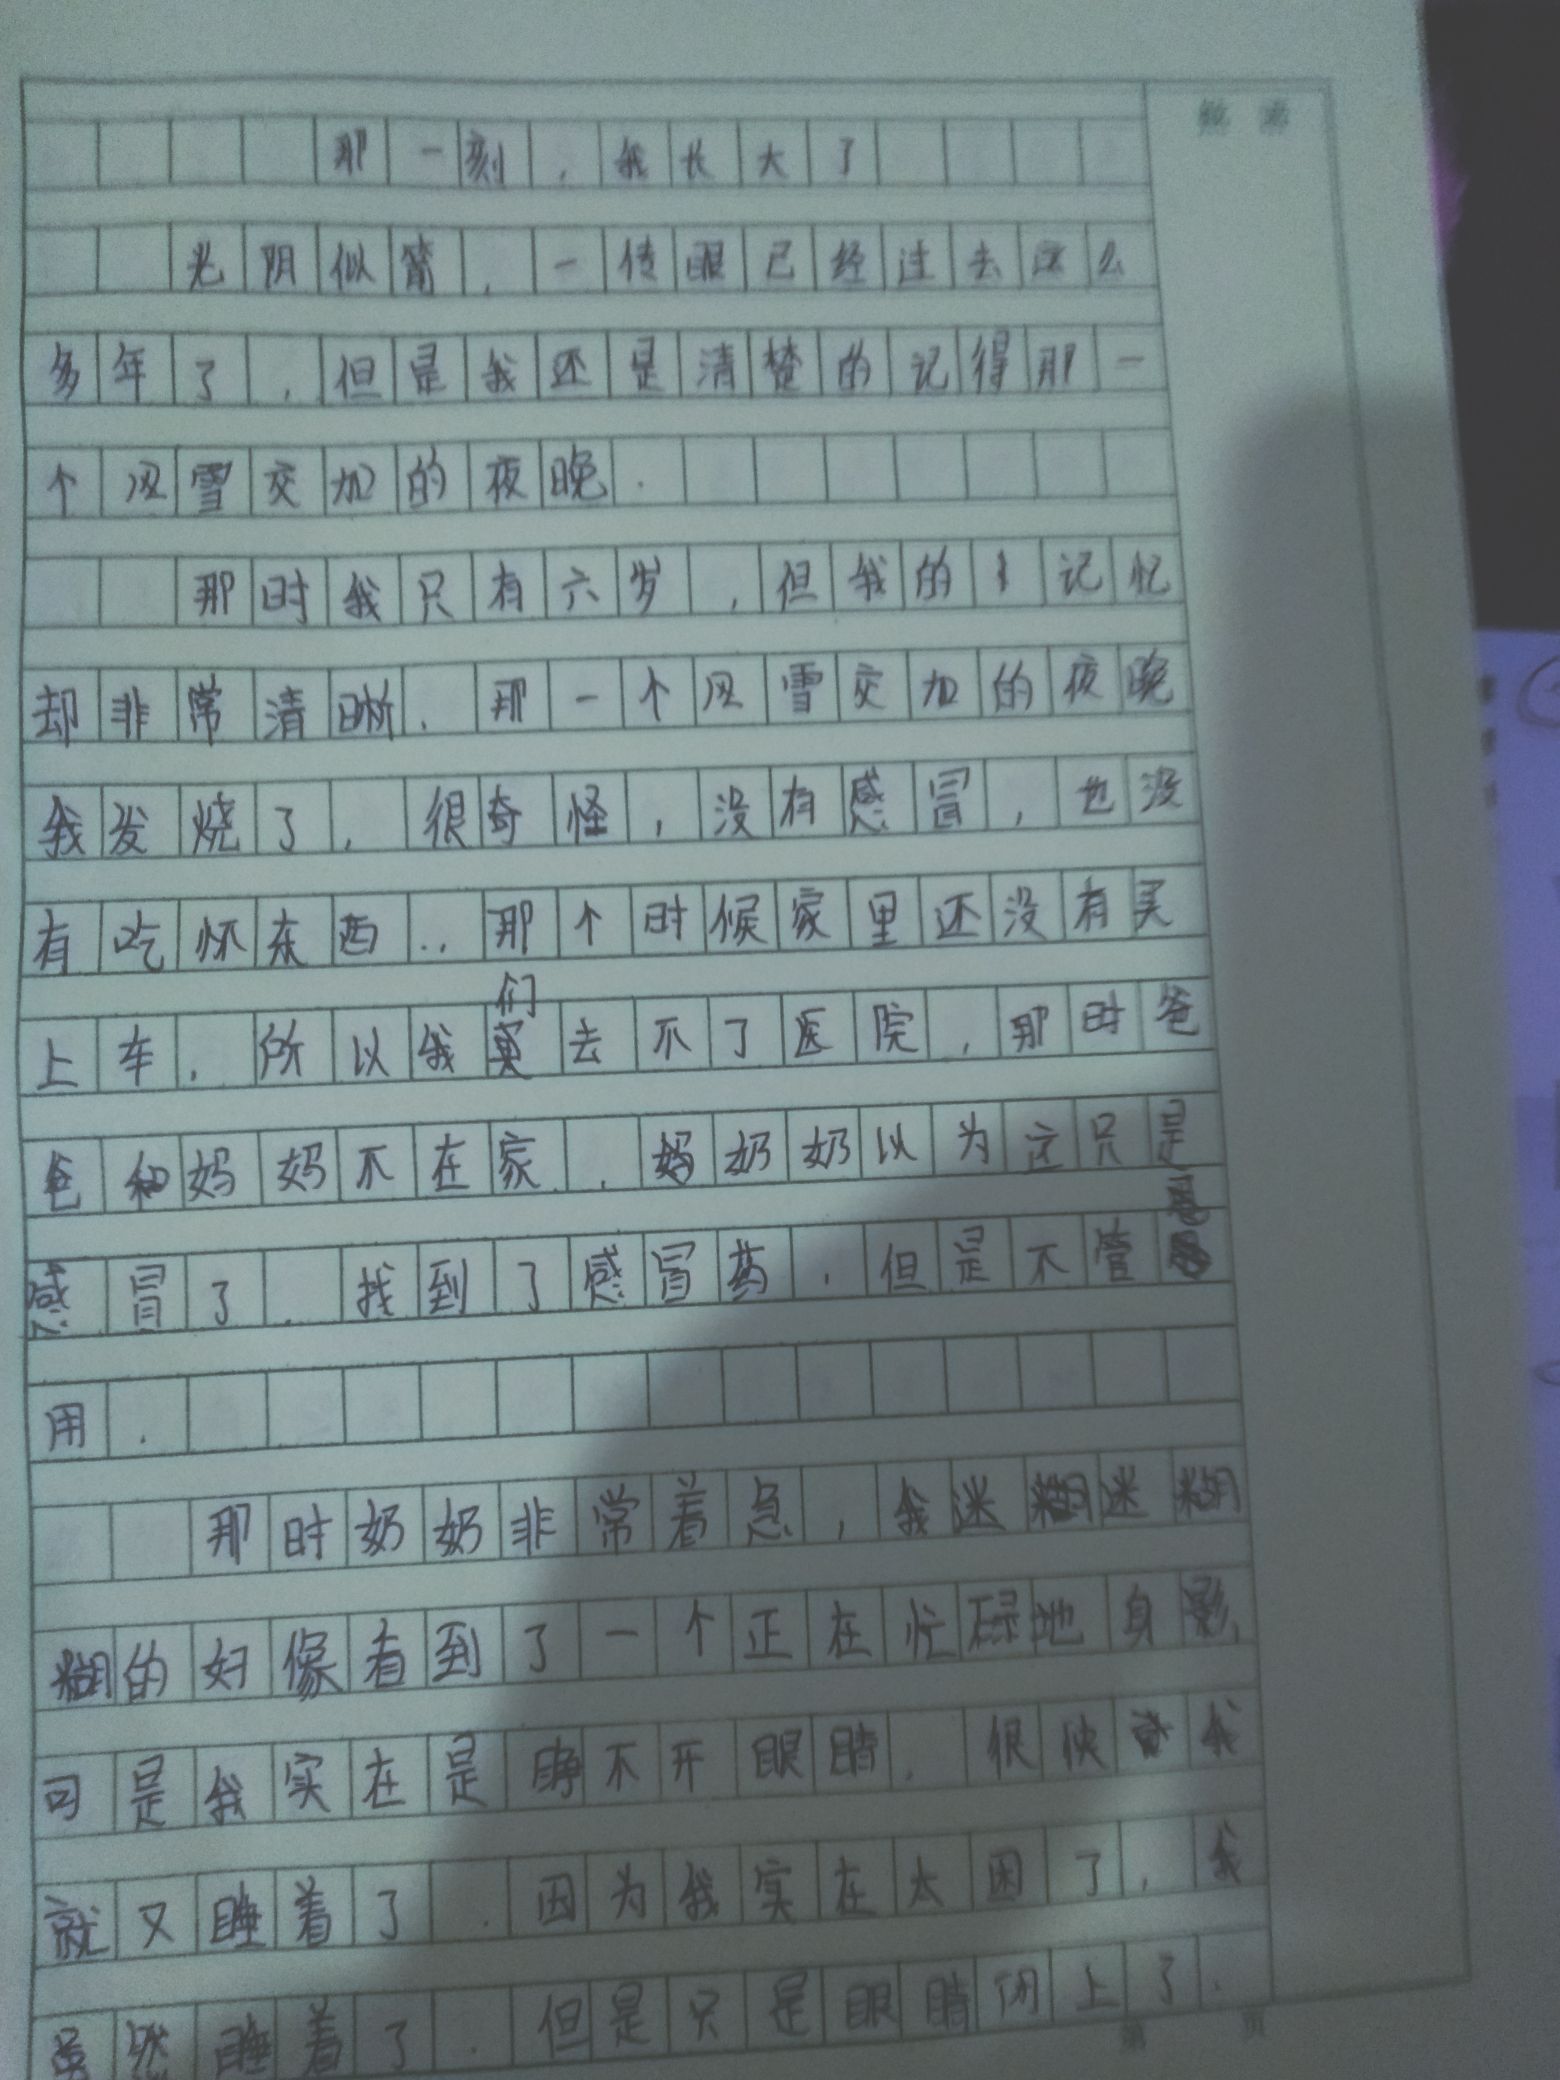 那一刻，我长大了
光阴似箭，一传眼已经过去这么
多年了，但是我还是清楚的记得那一
个风雪交加的夜晚.
那时我只有六岁，但我的记忆
却非常清晰.那一个风雪交加的夜晚
我发烧了，很奇怪，没有感冒，也没
有吃怀东西..那个时候家里还没有买
上车.所以我们去不了医院，那时爸
爸和妈妈不在家.奶奶以为这只是
感冒了.找到了感冒药.但是不管
用.
那时奶奶非常着急，我迷糊迷糊
糊的好像看到了一个正在忙碌地身影
可是我实在是睁不开眼睛.很快我
就又睡着了.因为我实在太困了，我
虽然睡着了.但是只是眼睛闭上了.
第 页